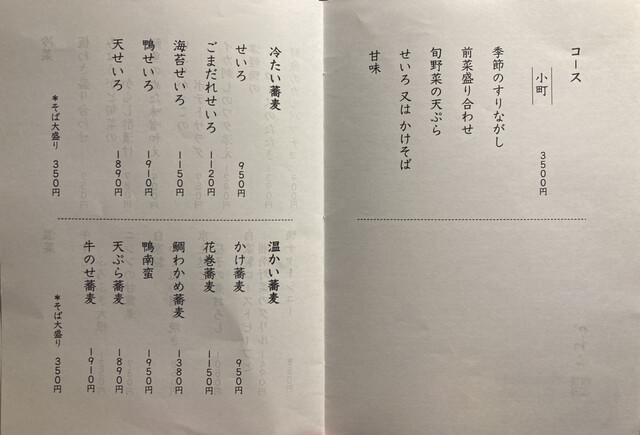 コース
小町 3500円
季節のすりながし
前菜盛り合わせ
旬野菜の天ぷら
せいろ 又は かけそば
甘味
冷たい蕎麦
せいろ 950円
ごまだれせいろ 1120円
海苔せいろ 1150円
鴨せいろ 1910円
天せいろ 1890円
*そば大盛り 350円
温かい蕎麦
かけ蕎麦 950円
花巻蕎麦 1150円
鯛わかめ蕎麦 1380円
鴨南蛮 1950円
天ぷら蕎麦 1890円
牛のせ蕎麦 1910円
*そば大盛り 350円